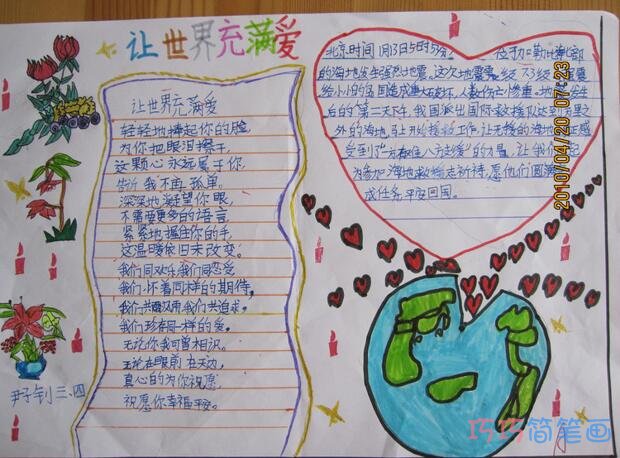 让世界充满爱
让世界充满爱
轻轻地捧起你的脸,
为你把眼泪擦干,
这颗心永远属于你,
告诉我不再孤单。
深深地凝望你眼,
不需要更多的语言,
紧紧地握住你的手,
这温暖依旧未改变。
我们同欢乐,我们同忍受
我们怀着同样的期待,
我们共风雨,我们共追求,
我们珍存同一样的爱。
无论你我可曾相识。
无论在眼前在天边,
真心的为你祝愿
祝愿你幸福平安。
三、四
北京时间1月13日5时53分? 位于加勒比北部
的海地发生强烈地震。这次地震震级7.3级
给 小小的 造成重大破坏,人数伤亡惨重。地震发生
后的第二天下午,我国派出国际救援队达到万里之
外的海地,马上开始 工作,让无援的海地 正感
受到了“一方有难八方支援”的力量,让我们一起
为参加海地救援 祈祷,愿他们圆满
成任务,平安回国。
2010/04/20 07:23
巧巧简笔画